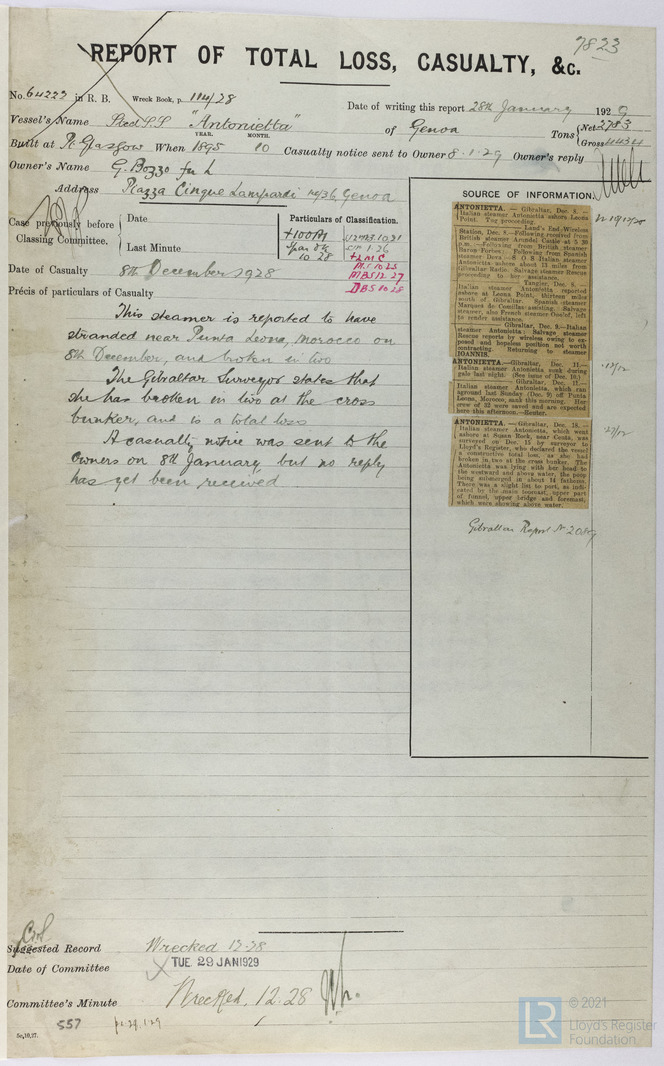 7823
REPORT OF TOTAL LOSS, CASUALTY, &c.
No. 64223 in R. B. Wreck Book, p. 114/28
Date of writing this report 28th January 1929
Vessel's Name Steel S.S "Antonietta" of Genoa Tons { Net 2783
Gross 4434
YEAR. MONTH.
Built at Pt. Glasgow When 1895 10 Casualty notice sent to Owner 8.1.29 Owner's reply
Owner's Name G. Bozzo fu L
Address Piazza Cinque Lampardi No 36, Genoa
Case previously before
Classing Committee,
Date
Last Minute
Particulars of Classification.
+100A1
10.28
1.26
+LMC
MBS 12.27
DBS 10.28
Date of Casualty 8th December 1928
Précis of particulars of Casualty
This steamer is reported to have
stranded near Punta Leona, Morocco on
8th December, and broken in two
The Gibraltar Surveyor states that
she has broken in two at the cross
bunker, and is a total loss
A casualty notice was sent to the
owners on 8th January, but no reply
has yet been received
SOURCE OF INFORMATION.
ANTONIETTA. — Gibraltar, Dec. 8. —
Italian steamer Antonietta ashore Leona
Point. Tug proceeding.
— Land's End Wireless
Station, Dec. 8.—Following received from
British steamer Arundel Castle at 5 30
p.m. —Following from British steamer
Baron Forbes: Following from Spanish
steamer Deva — S O S Italian steamer
Antonietta ashore about 13 miles from
Gibraltar Radio. Salvage steamer Rescue
proceeding to her assistance.
— Tangier, Dec. 8. —
Italian steamer Antonietta reported
ashore at Leona Point, thirteen miles
south of Gibraltar. Spanish steamer
Marques de Comillas assisting. Salvage
steamer, also French steamer Oualof, left
to render assistance.
Gibraltar, Dec. 9.—Italian
steamer Antonietta: Salvage steamer
Rescue reports by wireless owing to ex-
posed and hopeless position not worth
contracting. Returning to steamer
IOANNIS.
ANTONIETTA. —Gibraltar, Dec. 11.—
Italian steamer Antonietta sunk during
gale last night. (See issue of Dec. 10.)
— Gibraltar, Dec. 11.—
Italian steamer Antonietta, which ran
aground last Sunday (Dec. 9) off Punta
Leona, Morocco, sank this morning. Her
crew of 32 were saved and are expected
here this afternoon.—Reuter.
12/12
ANTONIETTA.—Gibraltar, Dec. 18.—
Italian steamer Antonietta, which went
ashore at Squan Rock, near Ceuta, was
surveyed on Dec. 15 by surveyor to
Lloyd's Register, who declared the vessel
a constructive total loss, as she had
broken in two at the cross bunker. The
Antonietta was lying with her head to
the westward and above water, the poop
being submerged in about 14 fathoms.
There was a slight list to port, as indi-
cated by the main topmast, upper part
of funnel, upper bridge and foremast,
which were showing above water.
27/12
Gibraltar Report No 2089
Suggested Record Wrecked 12.28
Date of Committee TUE 29 JAN 1929
Committee's Minute Wrecked, 12.28
557
5c,10,27.
LR © 2021
Lloyd's Register
Foundation